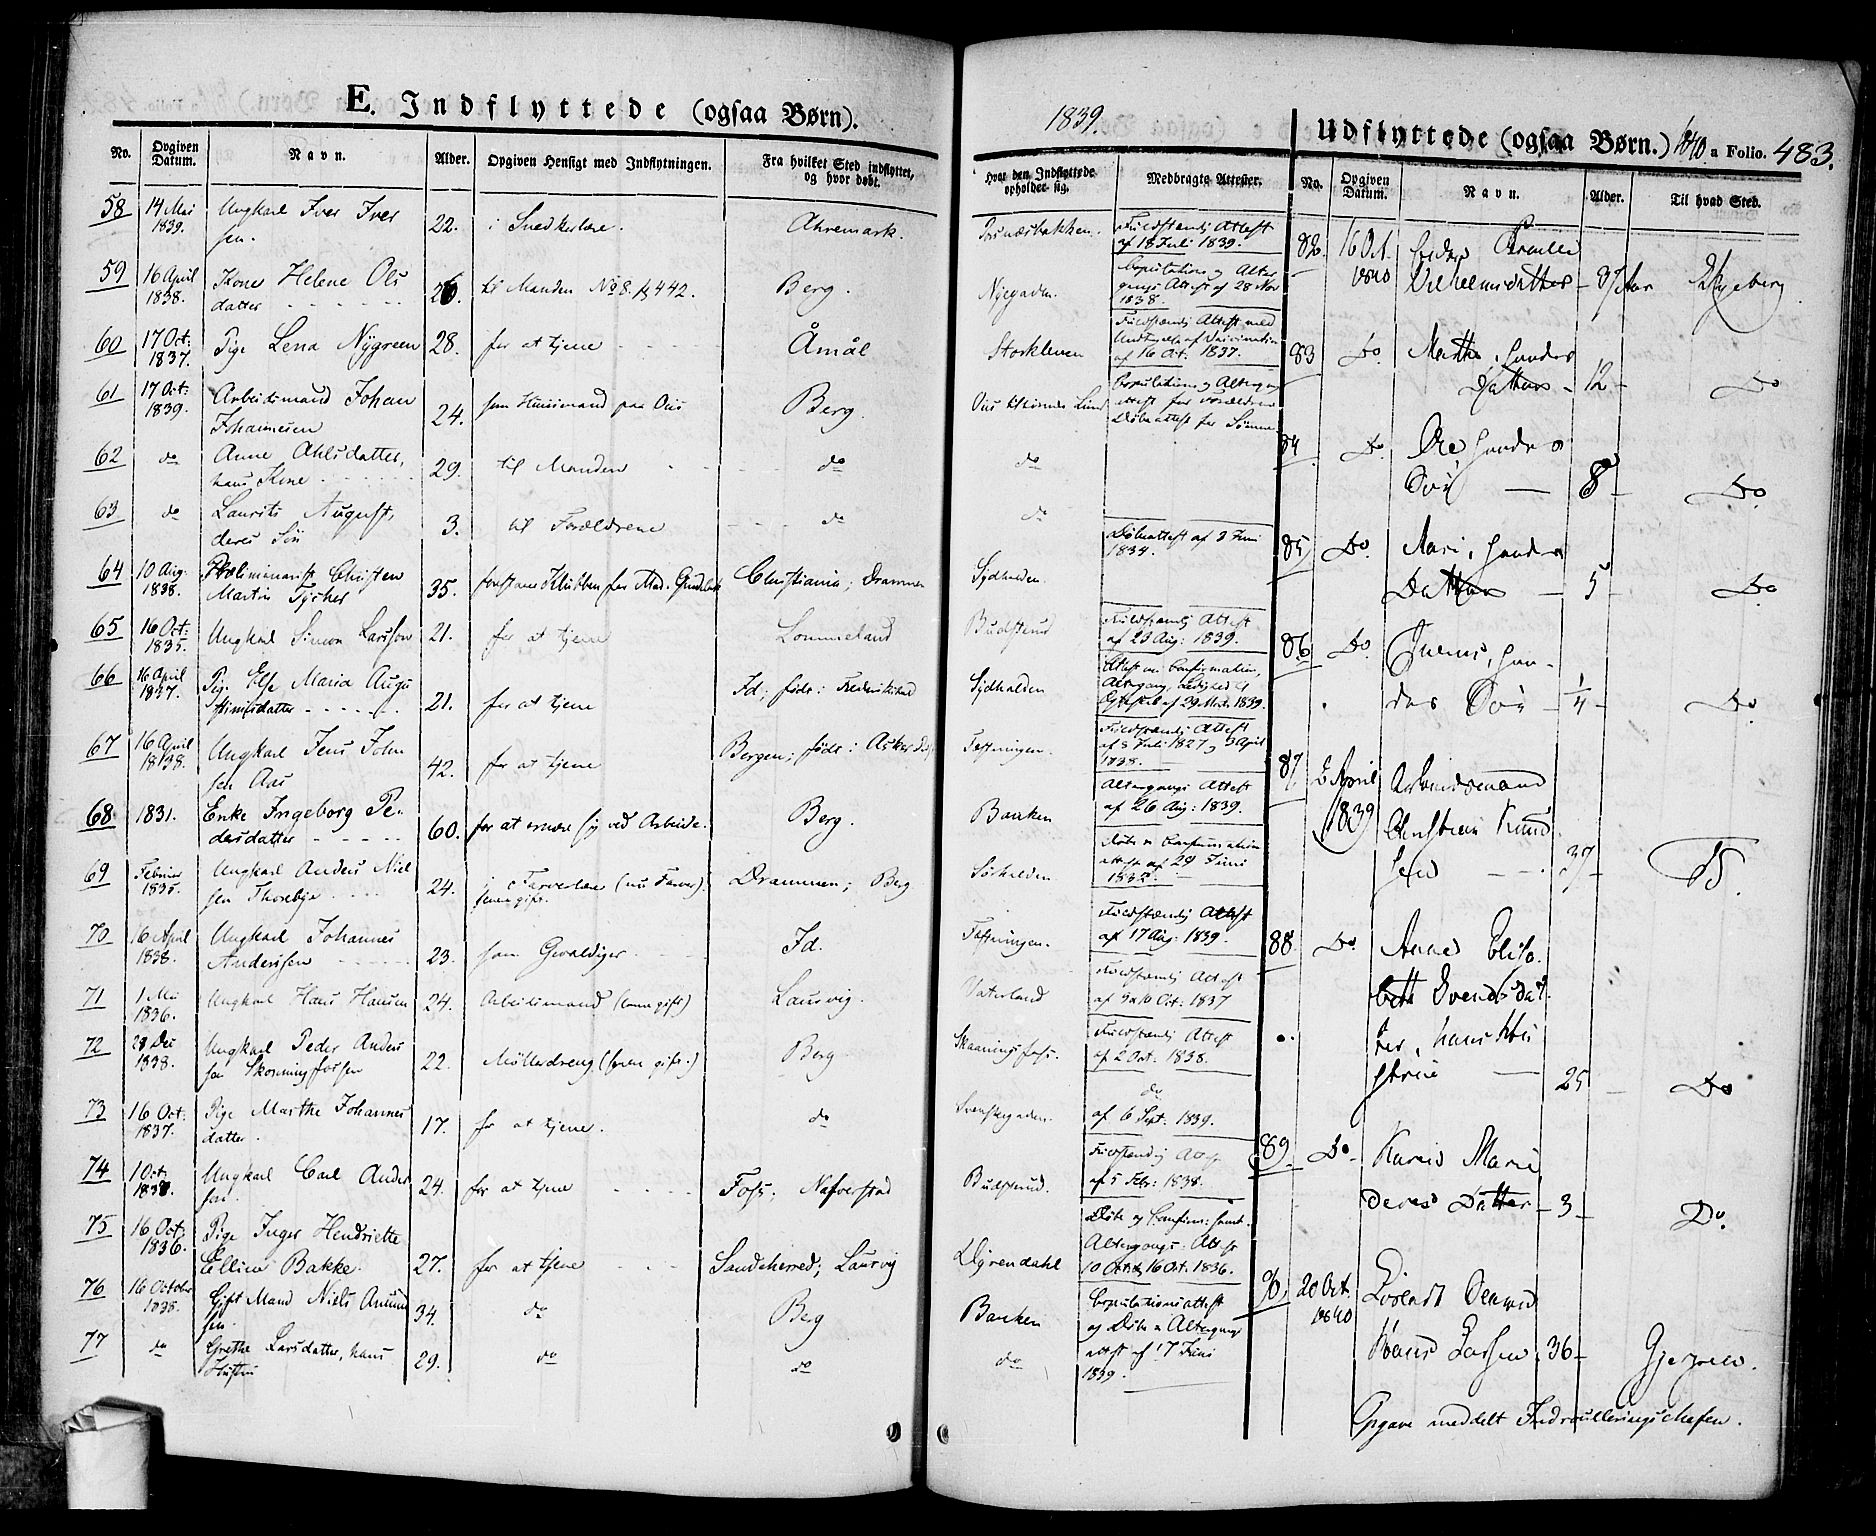 E. Indflyttede (ogsaa Børn).
1839.
Udflyttede (ogsaa Børn.) 1840 a Folio. 483.
No. Opgiven Datum. Navn. Alder. Opgiven Hensigt med Indflytningen. Fra hvilket Sted indflyttet, og hvor døbt. Hvor den Indflyttede opholder sig. Medbragte Attester.
58 14 Mai 1839. Ungkarl Iver Iversen. 22. i Snedkerlære. Ahremark. Fuldstændig Attest af 18 Juli 1839.
59 16 April 1838. Kone Helene Olsdatter 26. til Manden No 8. 442. Berg. Nyegaden. Copulations og Altergangs Attest af 28 Nov 1838.
60 17 Oct: 1837. Pige Lena Nygreen 28. for at tjene Åmål Storkleven Fuldstændig Attest med Undtagelse af Vaccination af 16 Oct. 1837.
61 17 Oct: 1839. Arbeidsmand Johan Johannesen 24. som Huusmand paa Ous Berg. Copulations og Altergangs attest for Forældrene Døbeattest for Sønnen
62 do Anne Ahlsdatter, hans Kone 29. til Manden do do
63 do Laurits August, deres Søn 3. til Forældrene do do
64 10 Aug. 1838. Christen Martin Tycher 35. Christiania; Drammen Sydhalden Døbeattest af 2 Juni 1834.
65 16 Oct: 1835. Ungkarl Simon Larsson 21. for at tjene Lommeland Budsterud Fuldstændig Attest af 20 Aug: 1839.
66 16 April 1837. Pige Else Maria Augustinusdatter 21. for at tjene Id; født i Frederikstad Sydhalden Attest om Confirmation, Altergang, Ledighed af 29 Mai 1839.
67 16 April 1838. Ungkarl Jens Johnsen Aas 42. for at tjene Bergen; født i Asker Fæstningen. Fuldstændig Attest af 8 Juli 1827 og 3 April 1838.
68 1831. Enke Ingeborg Pedersdatter 60. for at ernære sig ved Arbeide. Berg. Banken Altergangs Attest af 26 Aug: 1839.
69 Februar 1835. Ungkarl Anders Nielsen Thorebye 24. i Farverlære (nu Farver) Drammen; Berg Søhalden Døbe og Confirmations attest af 29 Juni 1832.
70 16 April 1838. Ungkarl Johannes Andersen 23. som Gevaldiger Id. Fæstningen. Fuldstændig Attest af 17 Aug. 1839.
71 1 Mai 1836. Ungkarl Hans Hansen 24. Arbeidsmand Laurvig. Vaterland Fuldstændig Attest af 9 Oct: 1837
72 28 Dec 1838. Ungkarl Peder Andersen Skonningfossen 22. Møllerdreng Berg Skaaningsfoss. Fuldstændig Attest af 2 Oct. 1838.
73 16 Oct: 1837. Pige Marthe Johannesdatter. 17. for at tjene. do Svenskegaden. do af 6 Sept. 1839.
74 1 Oct: Ungkarl Carl Andersen. 24. for at tjene Foss; Nafverstad Budsterud. Fuldstændig Attest af 5 Febr: 1838.
75 16 Oct: 1836. Pige Inger Hendriette Elline Bakke. 27. for at tjene Sandeherred; Laurvig Dyrendahl Døbe og Confirm: samt Altergangs: Attest 16 Oct. 1836.
76 16 October 1838. Gift Mand Niels Amundsen 34. do Berg Banken Copulationsattest og Døbe og Altergangs attest af 17 Juni 1839.
77 do Grethe Larsdatter, hans Hustru 29. do do do
No. Opgiven Datum. Navn. Alder. Til hvad Sted.
82 16 Oct. 1840 Vilhelmsdatter 37 Aar
83 Do Marthe, hendes Datter 12 Do
84 Do Ole, hendes Søn 8 Do
85 Do Mari, hendes Datter 5 Do
86 Do hendes Søn 1/4 Do
87 2 April 1839 Arbeidsmand Christian Knudsen 37
88 Do Anne Elisabeth Svendsdatter, hans Hustrue 25 Do
89 Do Karen Marie deres Datter 3 Do.
90 20 Oct. 1840 Hans Larsen 36
Opgave meddelt Indroulleringschefen.